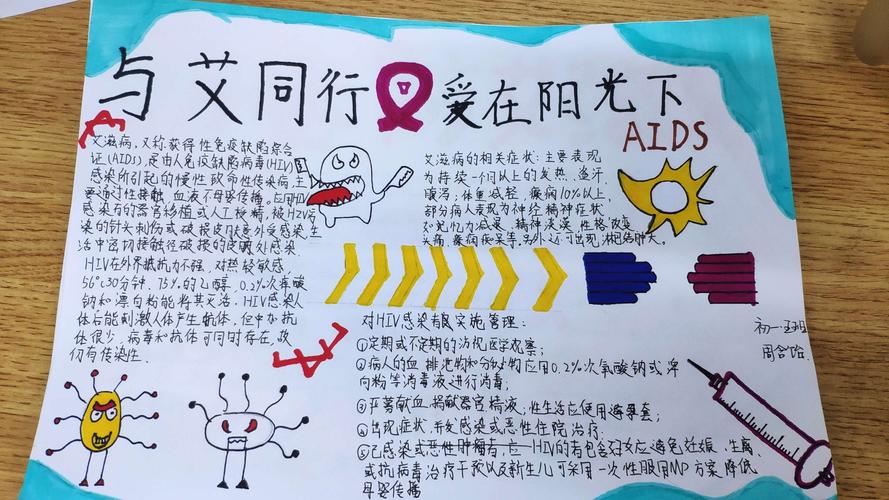 与艾同行 爱在阳光下
AIDS
艾滋病,又称获得性免疫缺陷综合
证(AIDS),是由人免疫缺陷病毒(HIV)
感染所引起的慢性致命性传染病,主
要通过性接触、血液不母婴传播。应用HIV
感染者的器官移植或人工授精,被HIV污
染的针头刺伤或破损皮肤意外受感染,生
活中密切接触经破损的皮肤处感染.
HIV在外界抵抗力不强,对热轻敏感,
56°C30分钟、75%的乙醇、0.2%次氯酸
钠和漂白粉能将其灭活。HIV感染人
体后能刺激人体产生抗体,但中和抗
体很少,病毒和抗体可同时存在,故
仍有传染性.
艾滋病的相关症状:主要表现
为持续一个月以上的发热、盗汗、
腹泻;体重减轻,10%以上,
部分病人表现为神经精神症状
如记忆力减退、精神淡漠、性格改变、
头痛、癫痫痴呆等,另外还可出现淋巴结肿大。
对HIV感染者及实施管理:
①定期或不定期的访视医学观察;
②病人的血、排泄物和分泌物应用0.2%次氯酸钠或漂
向粉等消毒液进行消毒;
③严募献血、捐献器官、精液;性生活应使用避孕套;
④出现症状、并发感染或恶性住院治疗.
⑤已感染或恶性肿瘤者,应 HIV的者包含妇女应避免妊娠、生育、
或抗病毒治疗干预以及新生儿可采用一次性服用MP方案,降低
母婴传播
初一五班